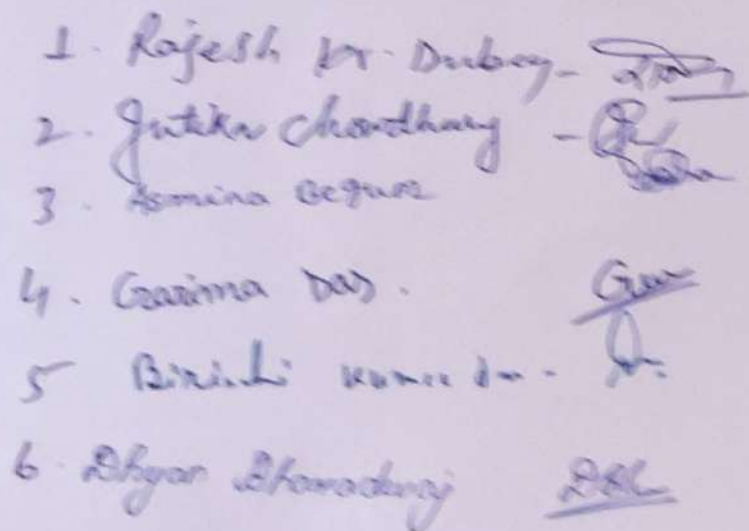 1. Rajesh Kr. Dubey -
2. Jutika Choudhury -
3. Asmina Begum
4. Garima Das.
5 Birinchi Kumar Das -
6. Dhyan Bharadwaj